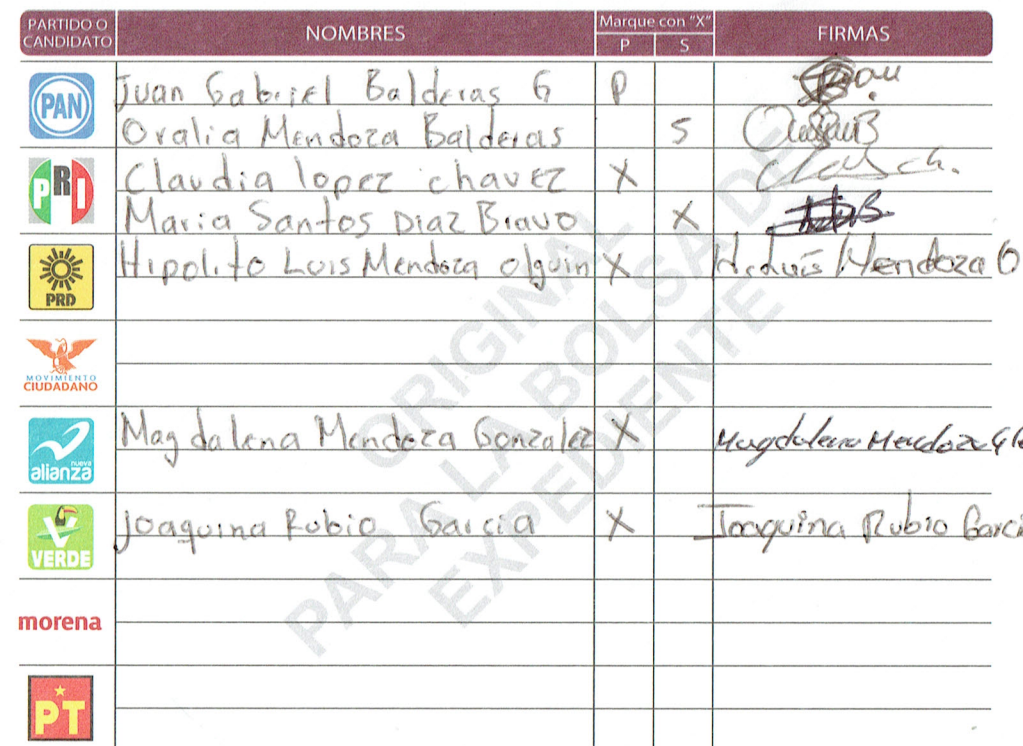 PARTIDO O CANDIDATO NOMBRES Marque con "X" P S FIRMAS
PAN Juan Gabriel Balderas G P
Oralia Mendoza Balderas S
PRI Claudia lopez chavez X
Maria Santos Diaz Bravo X
PRD Hipolito Luis Mendoza olguin X H. Luis Mendoza O
MOVIMIENTO CIUDADANO
nueva alianza Magdalena Mendoza Gonzalez X Magdalena Mendoza
VERDE Joaquina Rubio Garcia X Joaquina Rubio Garci
morena
PT
ORIGINAL
PARA LA BOLSA DE
EXPEDIENTE